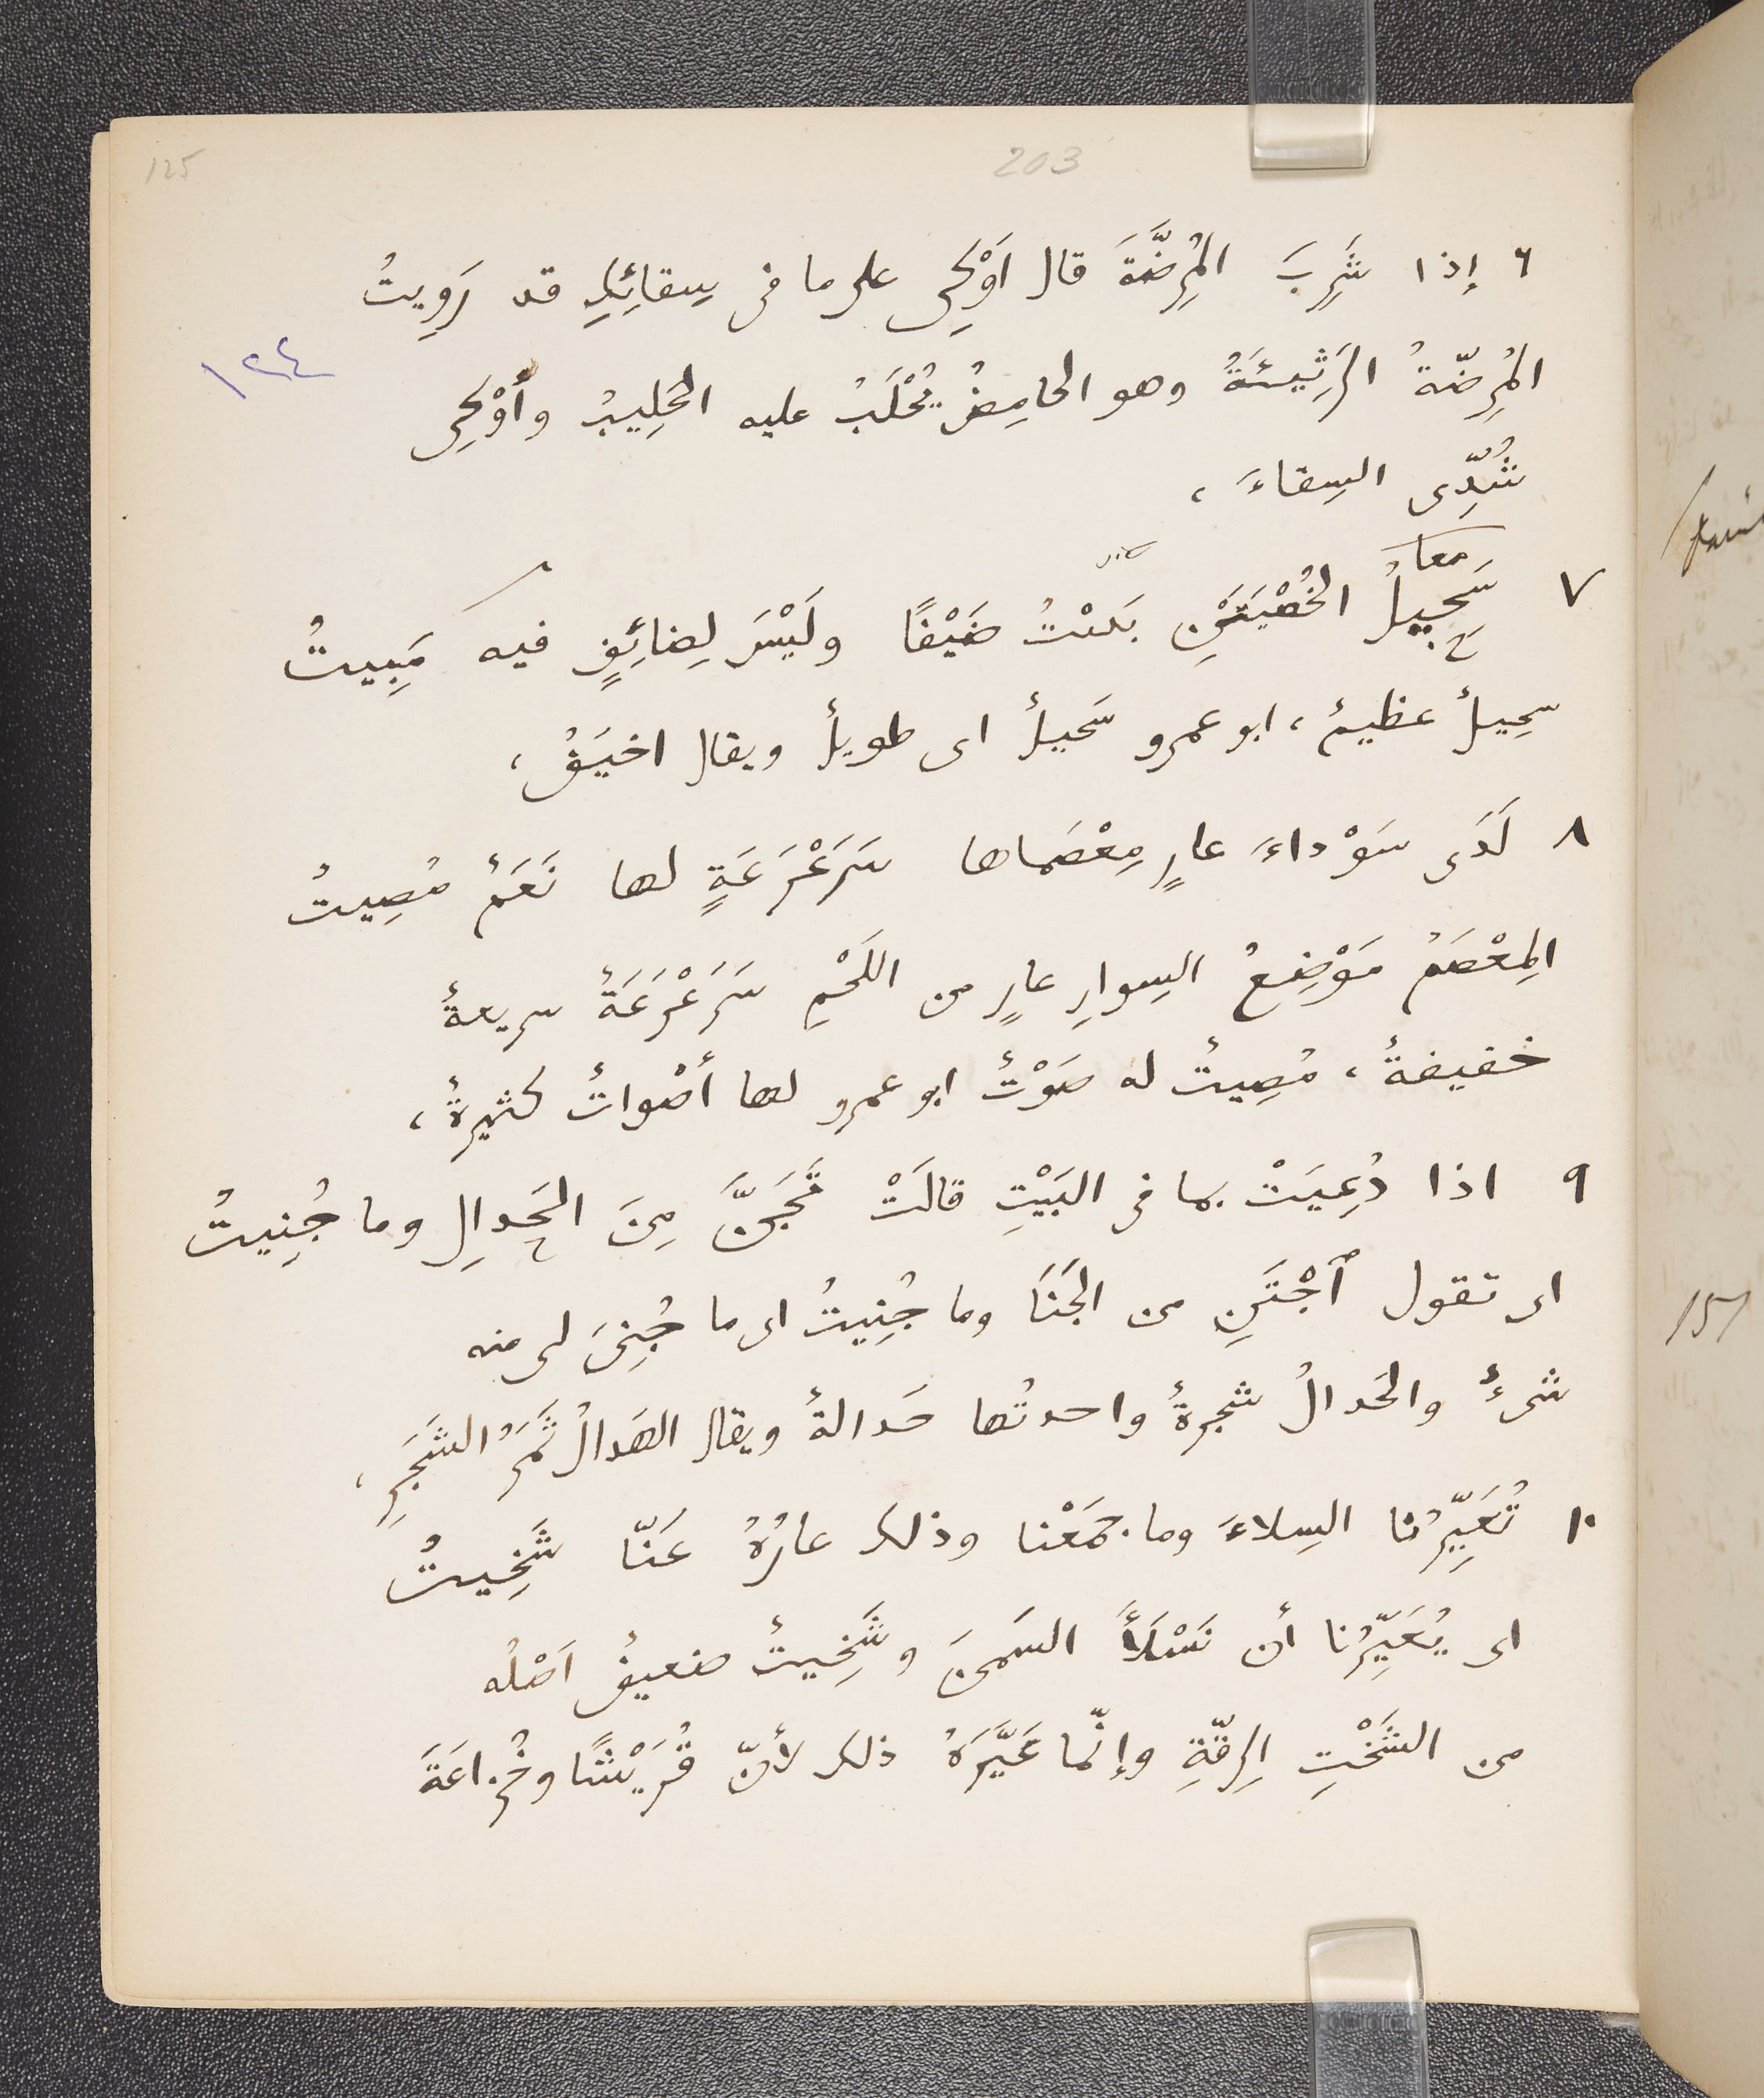 125
203
٦ إذا شَرِبَ المُرِضَّةَ قال أَوْكِى على ما فى سِقائِكِ قد رَوِيتُ
١٢٤
المُرِضّةُ الرَثِيئَةُ وهو الحامِضُ يُحْلَبُ عليه الحَلِيبُ وأَوْكِى
شُدِّى السِقاءَ ،
معا
٧ سَحِيلُ الخُصْيَتَيْنِ ضَيْفًا ولَيْسَ لِضائِفٍ فيه مَبِيتُ
سحِيلٌ عظيمٌ ، ابو عمرو سَحيلٌ اى طويلٌ ويقال اخيَفُ ،
٨ لَدَى سَوْداءَ عارٍ مِعْصَماها سَرَعْرَعَةٍ لها نَعَمٌ مُصِيتُ
المِعْصَمُ مَوْضِعُ السِوارِ عارٍ من اللَحْمِ سَرَعْرَعَةٌ سريعةٌ
خفيفةٌ ، مُصِيتٌ له صَوْتٌ ابو عمرو لها أصْواتٌ كثيرةٌ ،
٩ اذا دُعِيَتْ بما فى البَيْتِ قالَتْ تَجَنَّ مِنَ الحَدالِ وما جُنِيتُ
اى تقول ٱجْتَنِ من الجَنَا وما جُنِيتُ اى ما جُنِىَ لى منه
شىءٌ والحَدالُ شجرةٌ واحدتُها حَدالةٌ ويقال الهَدالُ ثَمَرُ الشَجَرِ ،
١٠ تُعَيِّرُنا السِلاءَ وما جمَعْنا وذلك عارُهُ عَنّا شَخِيتُ
اى يُعَيِّرُنا أن نَسْلَأَ السَمنَ وشَخِيتٌ ضعيفٌ اَصْلُه
من الشَخْتِ الرِقّةِ وإنّما عَيَّرَهُ ذلك لأنّ قُرَيْشًا وخُزاعَةَ